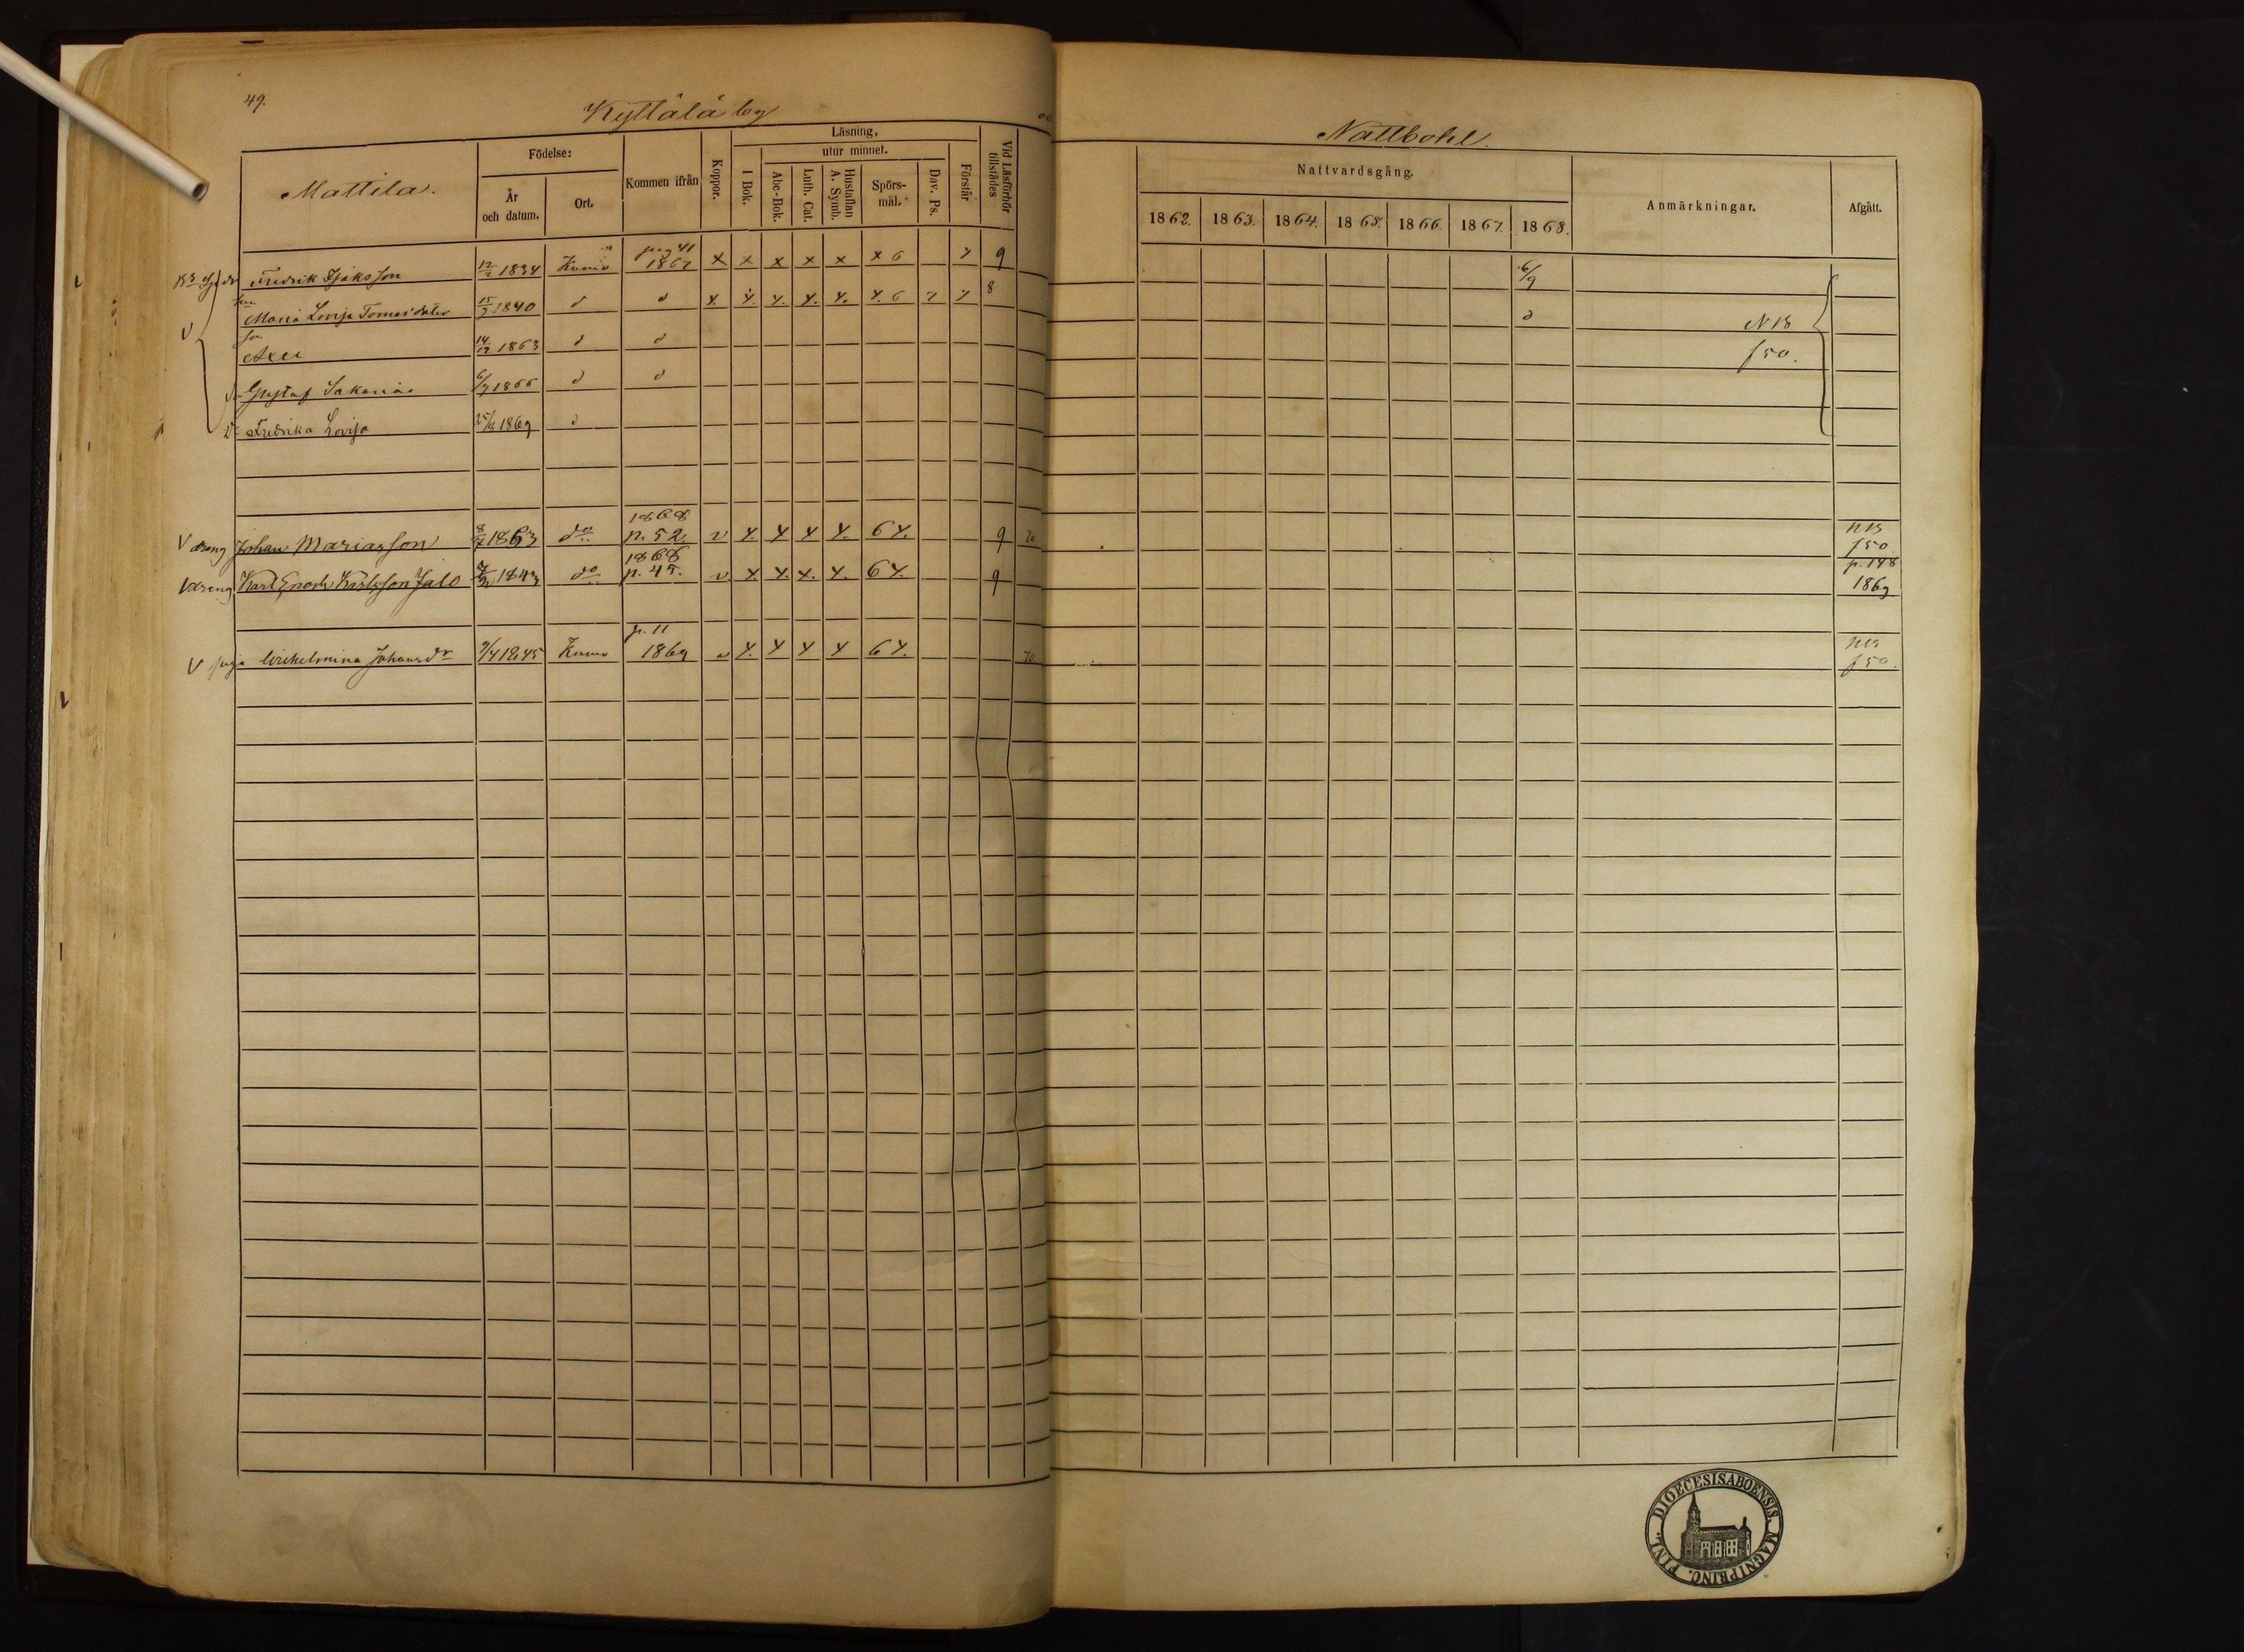 49.
Kyttälä by
Nattbohl.
Mattila.
Födelse:
År och datum.
Ort.
Kommen ifrån
Koppor.
Läsning,
I Bok.
utur minnet.
Abc-Bok.
Luth. Cat.
Hustaflan A. Symb.
Spörsmål.
Dav. Ps.
Förstår
Vid Läsförhör tillstädes
Nattvardsgång.
1862. 1863. 1864. 1865. 1866. 1867. 1868.
Anmärkningar.
Afgått.
Fredrik Isaksson 12/2 1834 Kumo pag 41 1867 x x x x x x 6 9 6/9
Maria Lovisa Tomasdoter 1840 d d 8 d
N 18
Axel 14/12 1863 d d
f 50.
Gustaf Sakarias 1866 d d
Fredrika Lovisa 1869 d
V dreng Johan Mariasson 1863 do 1868 p. 52. v 6 9 70 f 50.
dreng Karl Enoch Karlsson Jalo 1843 do 1868 p. 45. v 6 9 p. 148 1869
V piga Wilhelmina Johansdr 9/4 1845 Kumo p. 11 1869 6 70 f 50.
FINL. DIOECESIS ABOENSIS. MAGNI PRINC.